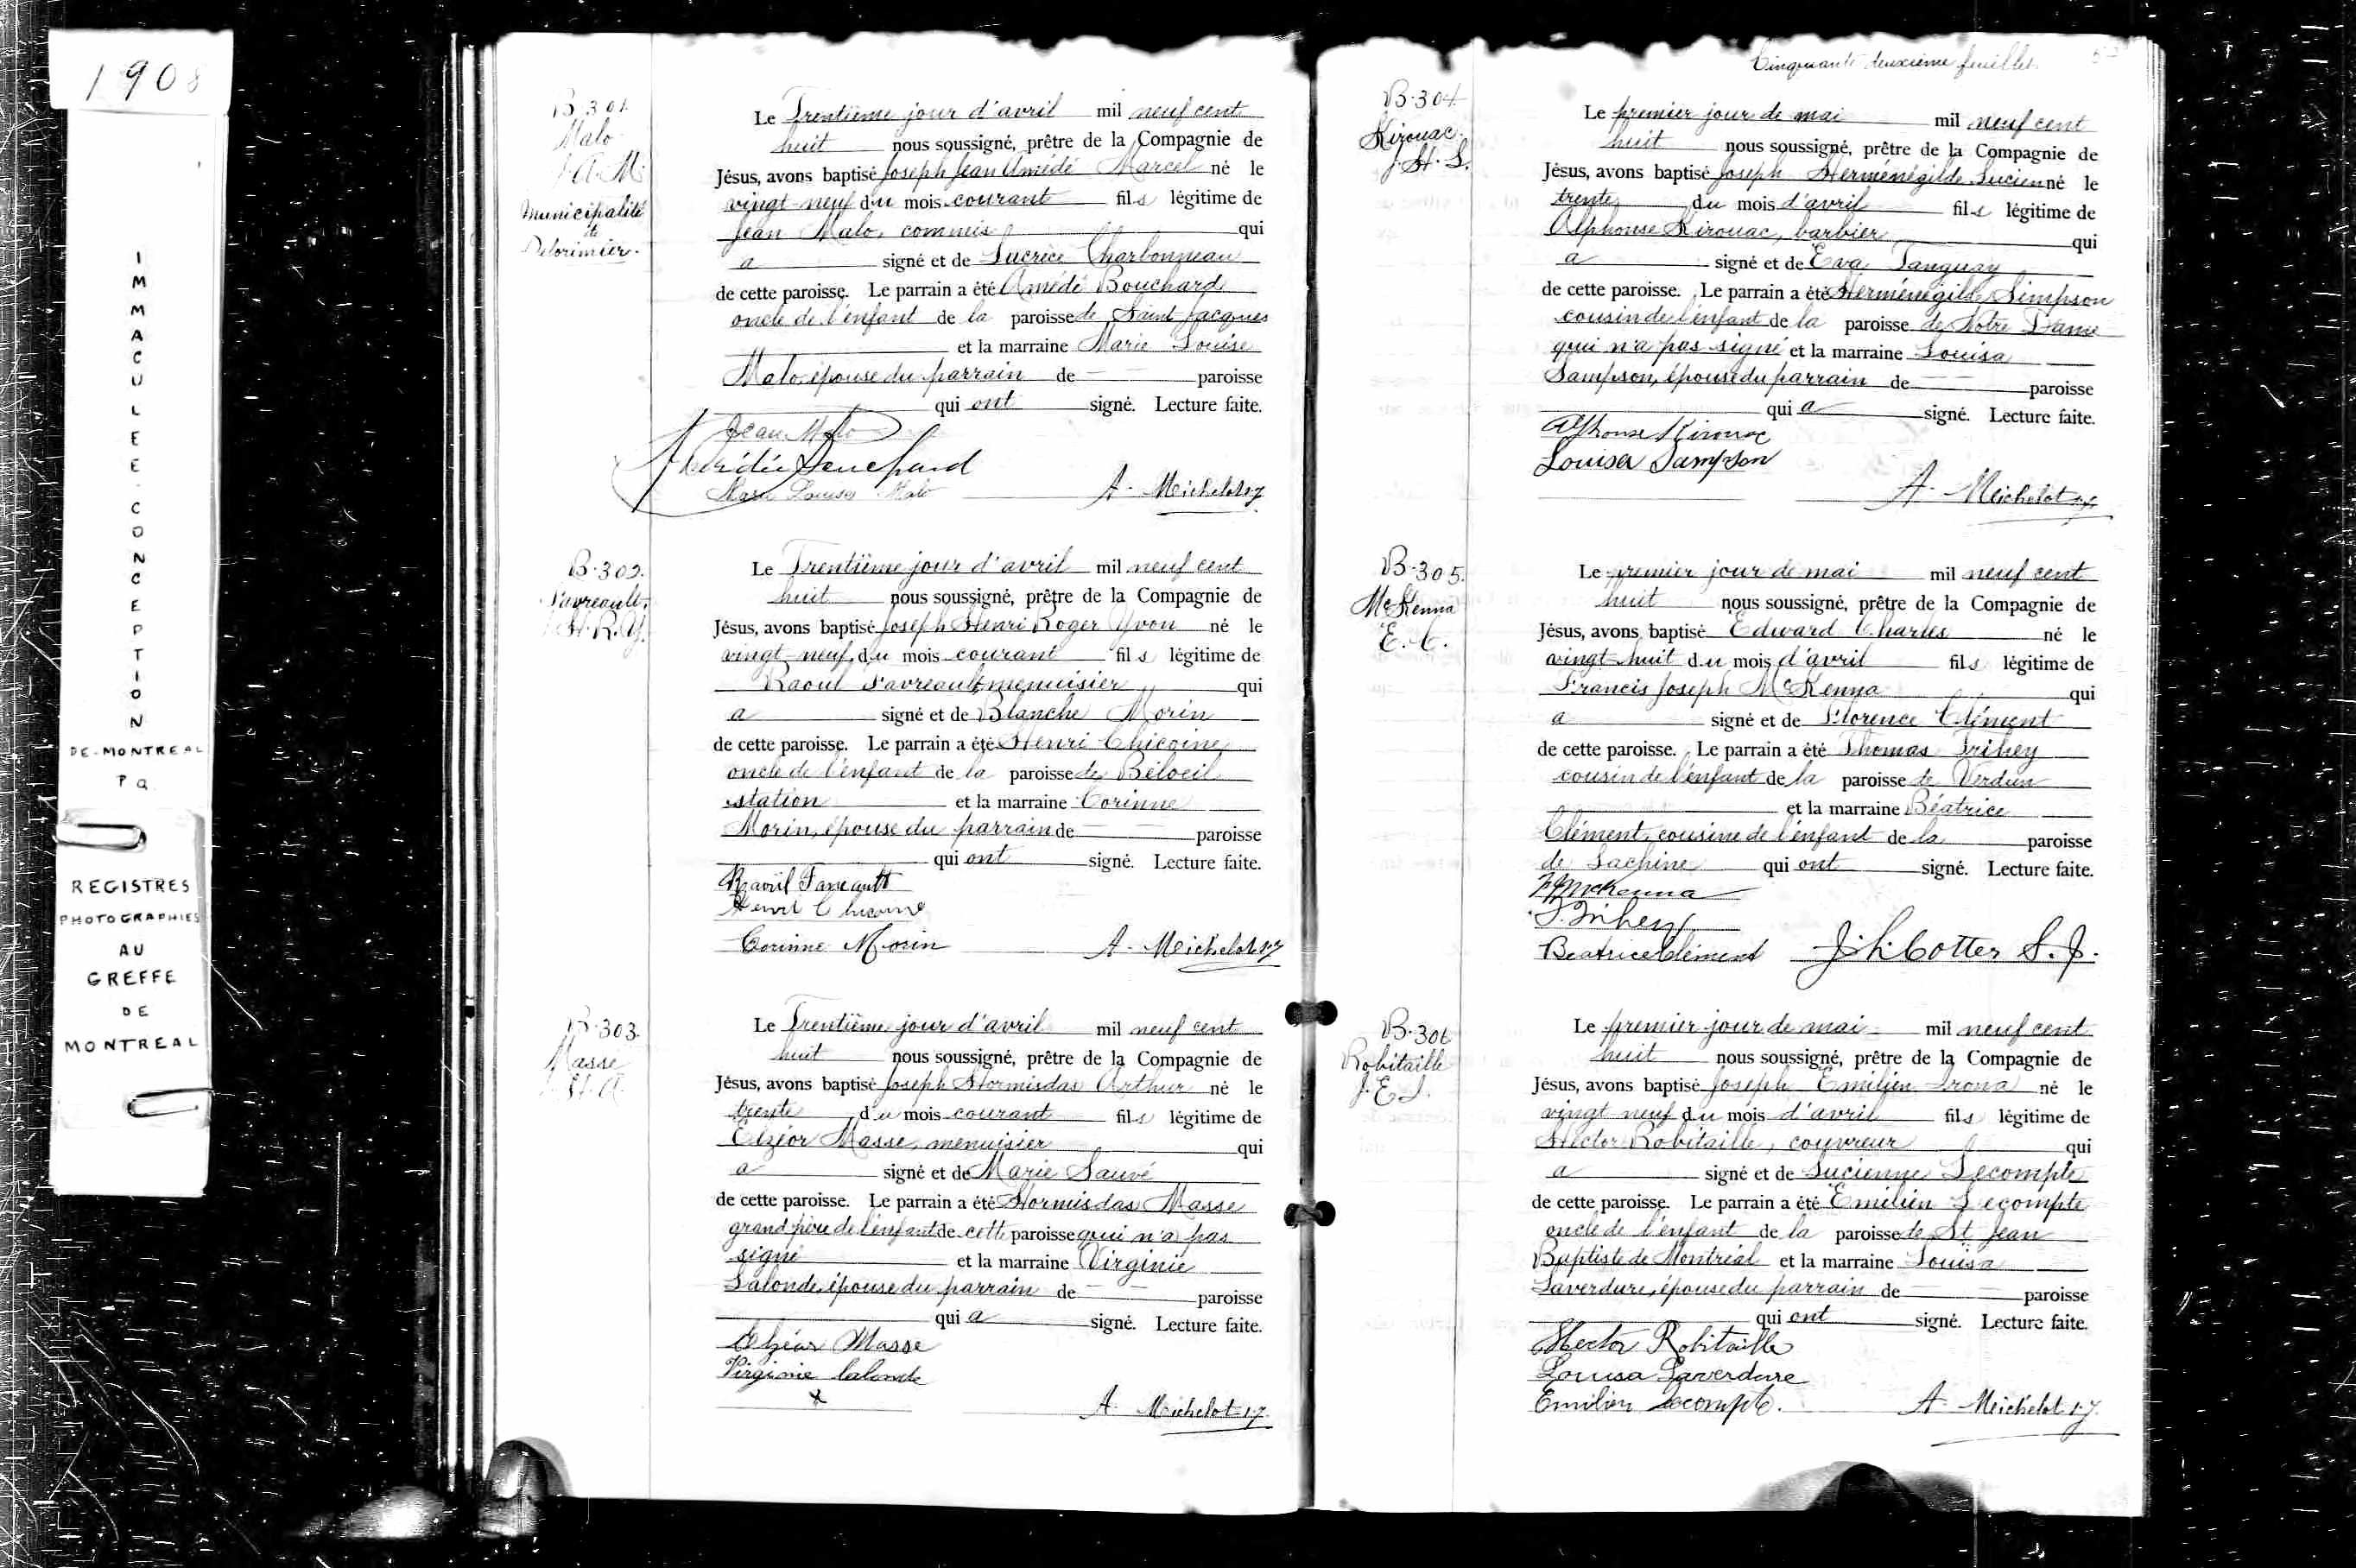 1908
IMMACULEE-CONCEPTION
DE-MONTREAL
P Q
REGISTRES
PHOTOGRAPHIES
AU
GREFFE
DE
MONTREAL
B.301.
Malo
J.A.M.
Municipalité
de
Delorimier.
Le Trentième jour d'avril mil neuf cent
huit nous soussigné, prêtre de la Compagnie de
Jésus, avons baptisé Joseph Jean Amédé Marcel né le
vingt-neuf du mois courant fils légitime de
Jean Malo, commis qui
a signé et de Lucrèce Charbonneau
de cette paroisse. Le parrain a été Amédé Bouchard
oncle de l'enfant de la paroisse de Saint Jacques
et la marraine Marie Louise
Malo, épouse du parrain de paroisse
qui ont signé. Lecture faite.
Jean Malo
Amédée Bouchard
Marie Louise Malo A. Meichelot s.j.
B.302.
Favreault,
J.H.R.Y.
Le Trentième jour d'avril mil neuf cent
huit nous soussigné, prêtre de la Compagnie de
Jésus, avons baptisé Joseph Henri Roger Yvon né le
vingt-neuf du mois courant fils légitime de
Raoul Favreault, menuisier qui
a signé et de Blanche Morin
de cette paroisse. Le parrain a été Henri Chicoine,
oncle de l'enfant de la paroisse de Béloeil
station et la marraine Corinne
Morin, épouse du parrain de paroisse
qui ont signé. Lecture faite.
Raoül Favreault
Henri Chicoine
Corinne Morin A. Meichelot s.j.
B.303.
Masse
J.H.A.
Le Trentième jour d'avril mil neuf cent
huit nous soussigné, prêtre de la Compagnie de
Jésus, avons baptisé Joseph Hormisdas Arthur né le
trente du mois courant fils légitime de
Elzéor Masse, menuisier qui
a signé et de Marie Sauvé
de cette paroisse. Le parrain a été Hormisdas Masse
grand père de l'enfant de cette paroisse qui n'a pas
signé et la marraine Virginie
Lalonde, épouse du parrain de paroisse
qui a signé. Lecture faite.
Elzéar Masse
Virginie Lalonde
x
A. Meichelot s.j.
Cinquante deuxième feuillet. 52
B.304
Kirouac.
J.H.L.
Le premier jour de mai mil neuf cent
huit nous soussigné, prêtre de la Compagnie de
Jésus, avons baptisé Joseph Herménégilde Lucien né le
trente du mois d'avril fils légitime de
Alphonse Kirouac, barbier qui
a signé et de Eva Tanguay
de cette paroisse. Le parrain a été Herménégilde Simpson
cousin de l'enfant de la paroisse de Notre Dame
qui n'a pas signé et la marraine Louisa
Sampson, épouse du parrain de paroisse
qui a signé. Lecture faite.
Alphonse Kirouac
Louisa Sampson
A. Meichelot s.j.
B.305.
McKenna
E.C.
Le premier jour de mai mil neuf cent
huit nous soussigné, prêtre de la Compagnie de
Jésus, avons baptisé Edward Charles né le
vingt-huit du mois d'avril fils légitime de
Francis Joseph McKenna qui
a signé et de Florence Clément
de cette paroisse. Le parrain a été Thomas Trihey
cousin de l'enfant de la paroisse de Verdun
et la marraine Béatrice
Clément, cousine de l'enfant de la paroisse
de Lachine qui ont signé. Lecture faite.
FJMcKenna
T. Trihey
Beatrice Clément J.h.Cotter S.J.
B.306
Robitaille
J.E.I.
Le premier jour de mai mil neuf cent
huit nous soussigné, prêtre de la Compagnie de
Jésus, avons baptisé Joseph Emilien Irona né le
vingt-neuf du mois d'avril fils légitime de
Hector Robitaille, couvreur qui
a signé et de Lucienne Lecompte
de cette paroisse. Le parrain a été Emilien Lecompte
oncle de l'enfant de la paroisse de St Jean
Baptiste de Montréal et la marraine Louisa
Laverdure, épouse du parrain de paroisse
qui ont signé. Lecture faite.
Hector Robitaille
Louisa Laverdure
Emilien Lecompte. A. Meichelot s.j.